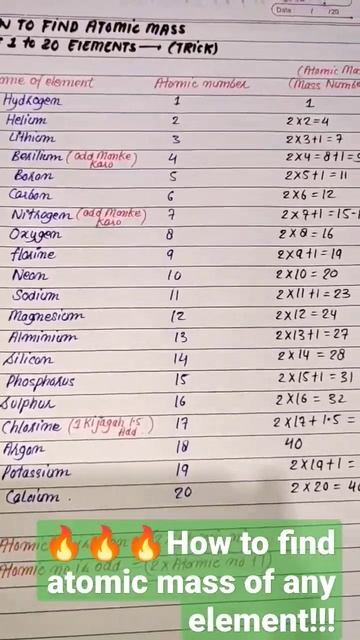 Date : / /20
N TO FIND ATOMIC MASS
1 to 20 ELEMENTS → (TRICK)
me of element Atomic number (Atomic Ma
(Mass Numbe
Hydrogen 1 1
Helium 2 2×2=4
Lithium 3 2×3+1=7
Berilium (odd Manke Karo 4 2×4=8+1=9
Boron 5 2×5+1=11
Carbon 6 2×6=12
Nitrogen (odd Manke Karo) 7 2×7+1=15-1
Oxygen 8 2×8=16
florine 9 2×9+1=19
Neon 10 2×10=20
Sodium 11 2×11+1=23
Magnesium 12 2×12=24
Alminium 13 2×13+1=27
Silicon 14 2×14=28
Phosphorus 15 2×15+1=31
Sulphur 16 2×16=32
Chlorine (1 Ki jagah 1.5 Add.) 17 2×17+1.5=
Argon 18 40
Potassium 19 2×19+1=
Calcium. 20 2×20=40
🔥🔥🔥How to find
atomic mass of any
element!!!
Atomic
Atomic no. is odd → (2×Atomic no +1)